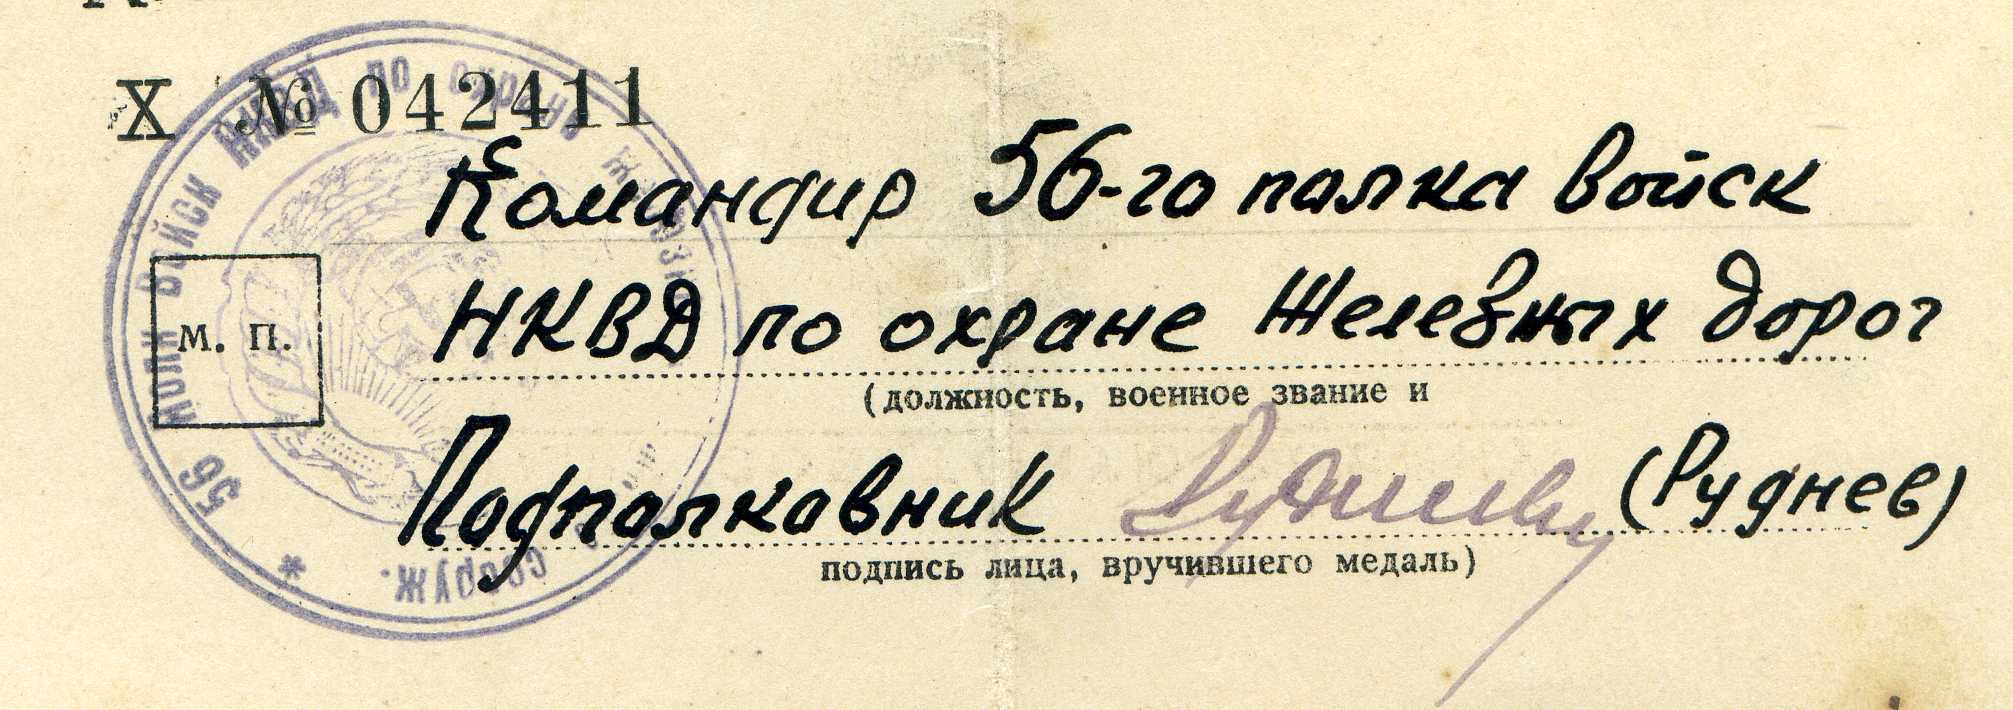 Х № 042411
Командир 56-го полка войск
НКВД по охране Железных дорог
М. П.
(должность, военное звание и
Подполковник Руднев (Руднев)
подпись лица, вручившего медаль)
56 полк войск НКВД по охране железн
сооруж.